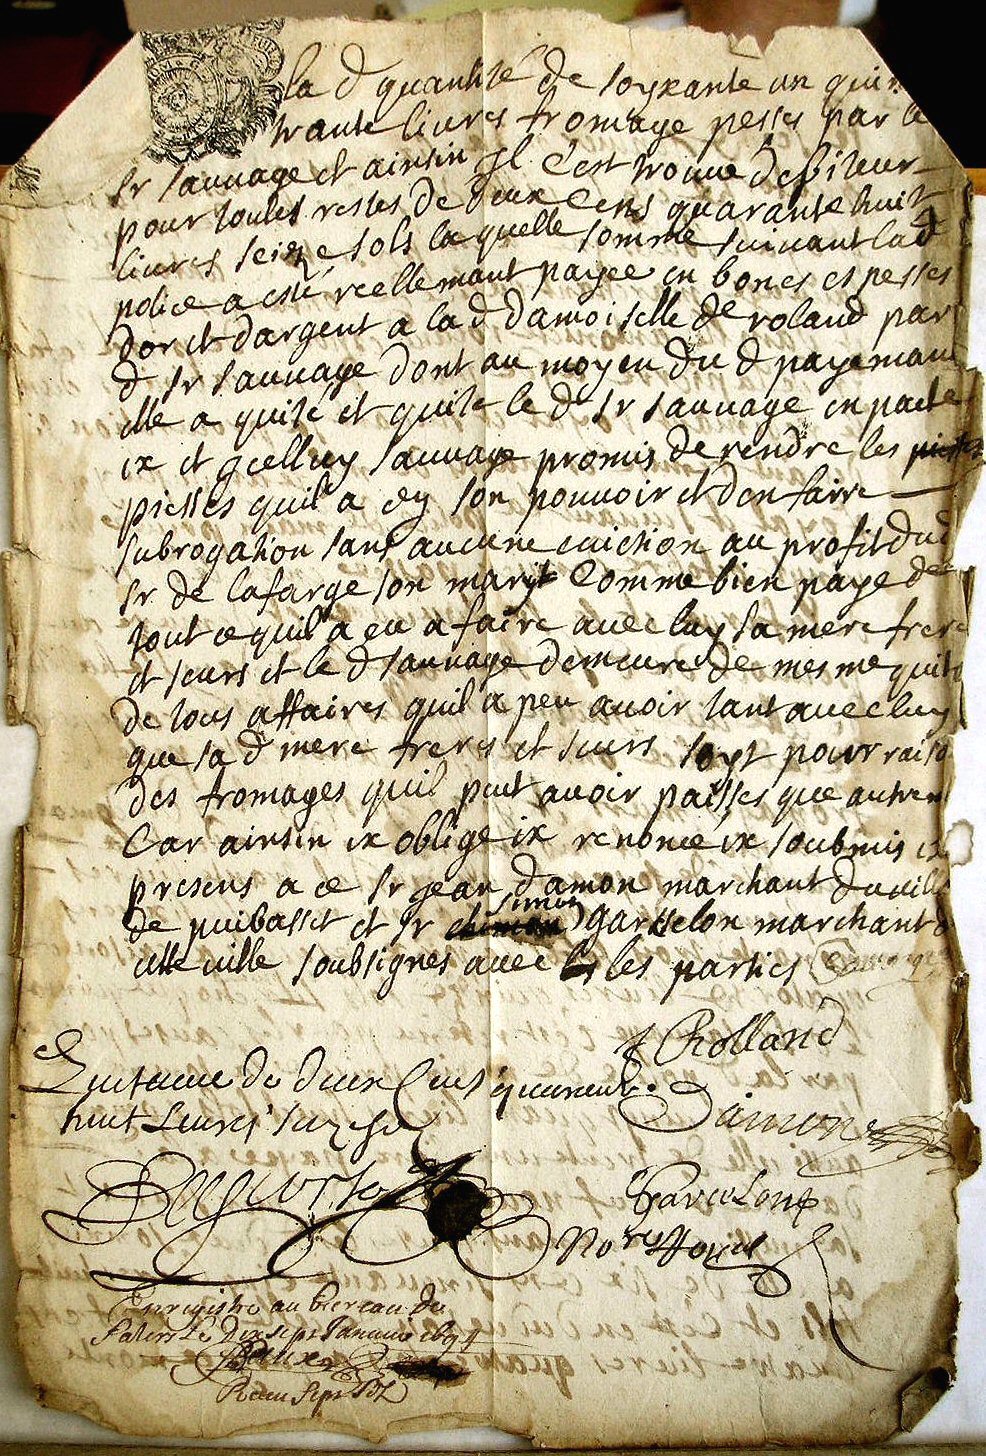 la d quantité de soyxante un quin
trante livres fromage pesses par le
sr sauvage et ainsin Il c'est trouvé debiteur
pour toutes restes de deux cens quarante huit
livres seize sols laquelle somme suivant lad
police a esté reellemant payée en bones espesses
dor et dargent a lad damoiselle de roland par
d sr sauvage dont au moyen du d payemant
elle a quité et quite le d sr sauvage en pacte
ix et Icelluy sauvage promis de rendre les
piesses quil a ey son pouvoir et den faire
subrogation sans aucune eviction au profit dud
sr de lafarge son maryt comme bien payé de
tout ce quil a eu a faire avec luy sa mere frere
et seurs et le d sauvage demeure de mesme quite
de tous affaires quil a peu avoir tant avec luy
que sa d mere freres et seurs soyt pour raiso
des fromages quil peut avoir paisses que autrem
Car ainsin ix obligé ix renoncé ix soubmis ix
presens a ce sr jean damon marchant du
de puibasset et sr simon garselon marchant d
cette ville soubsignes avec les parties
J Rolland
quitance de deux Cens quarente
huit Livres seize s
Damon
Garcelon
No.re Royal
Enregistré au bureau de
Salers Le dix sept Janvier
Receu sept sols